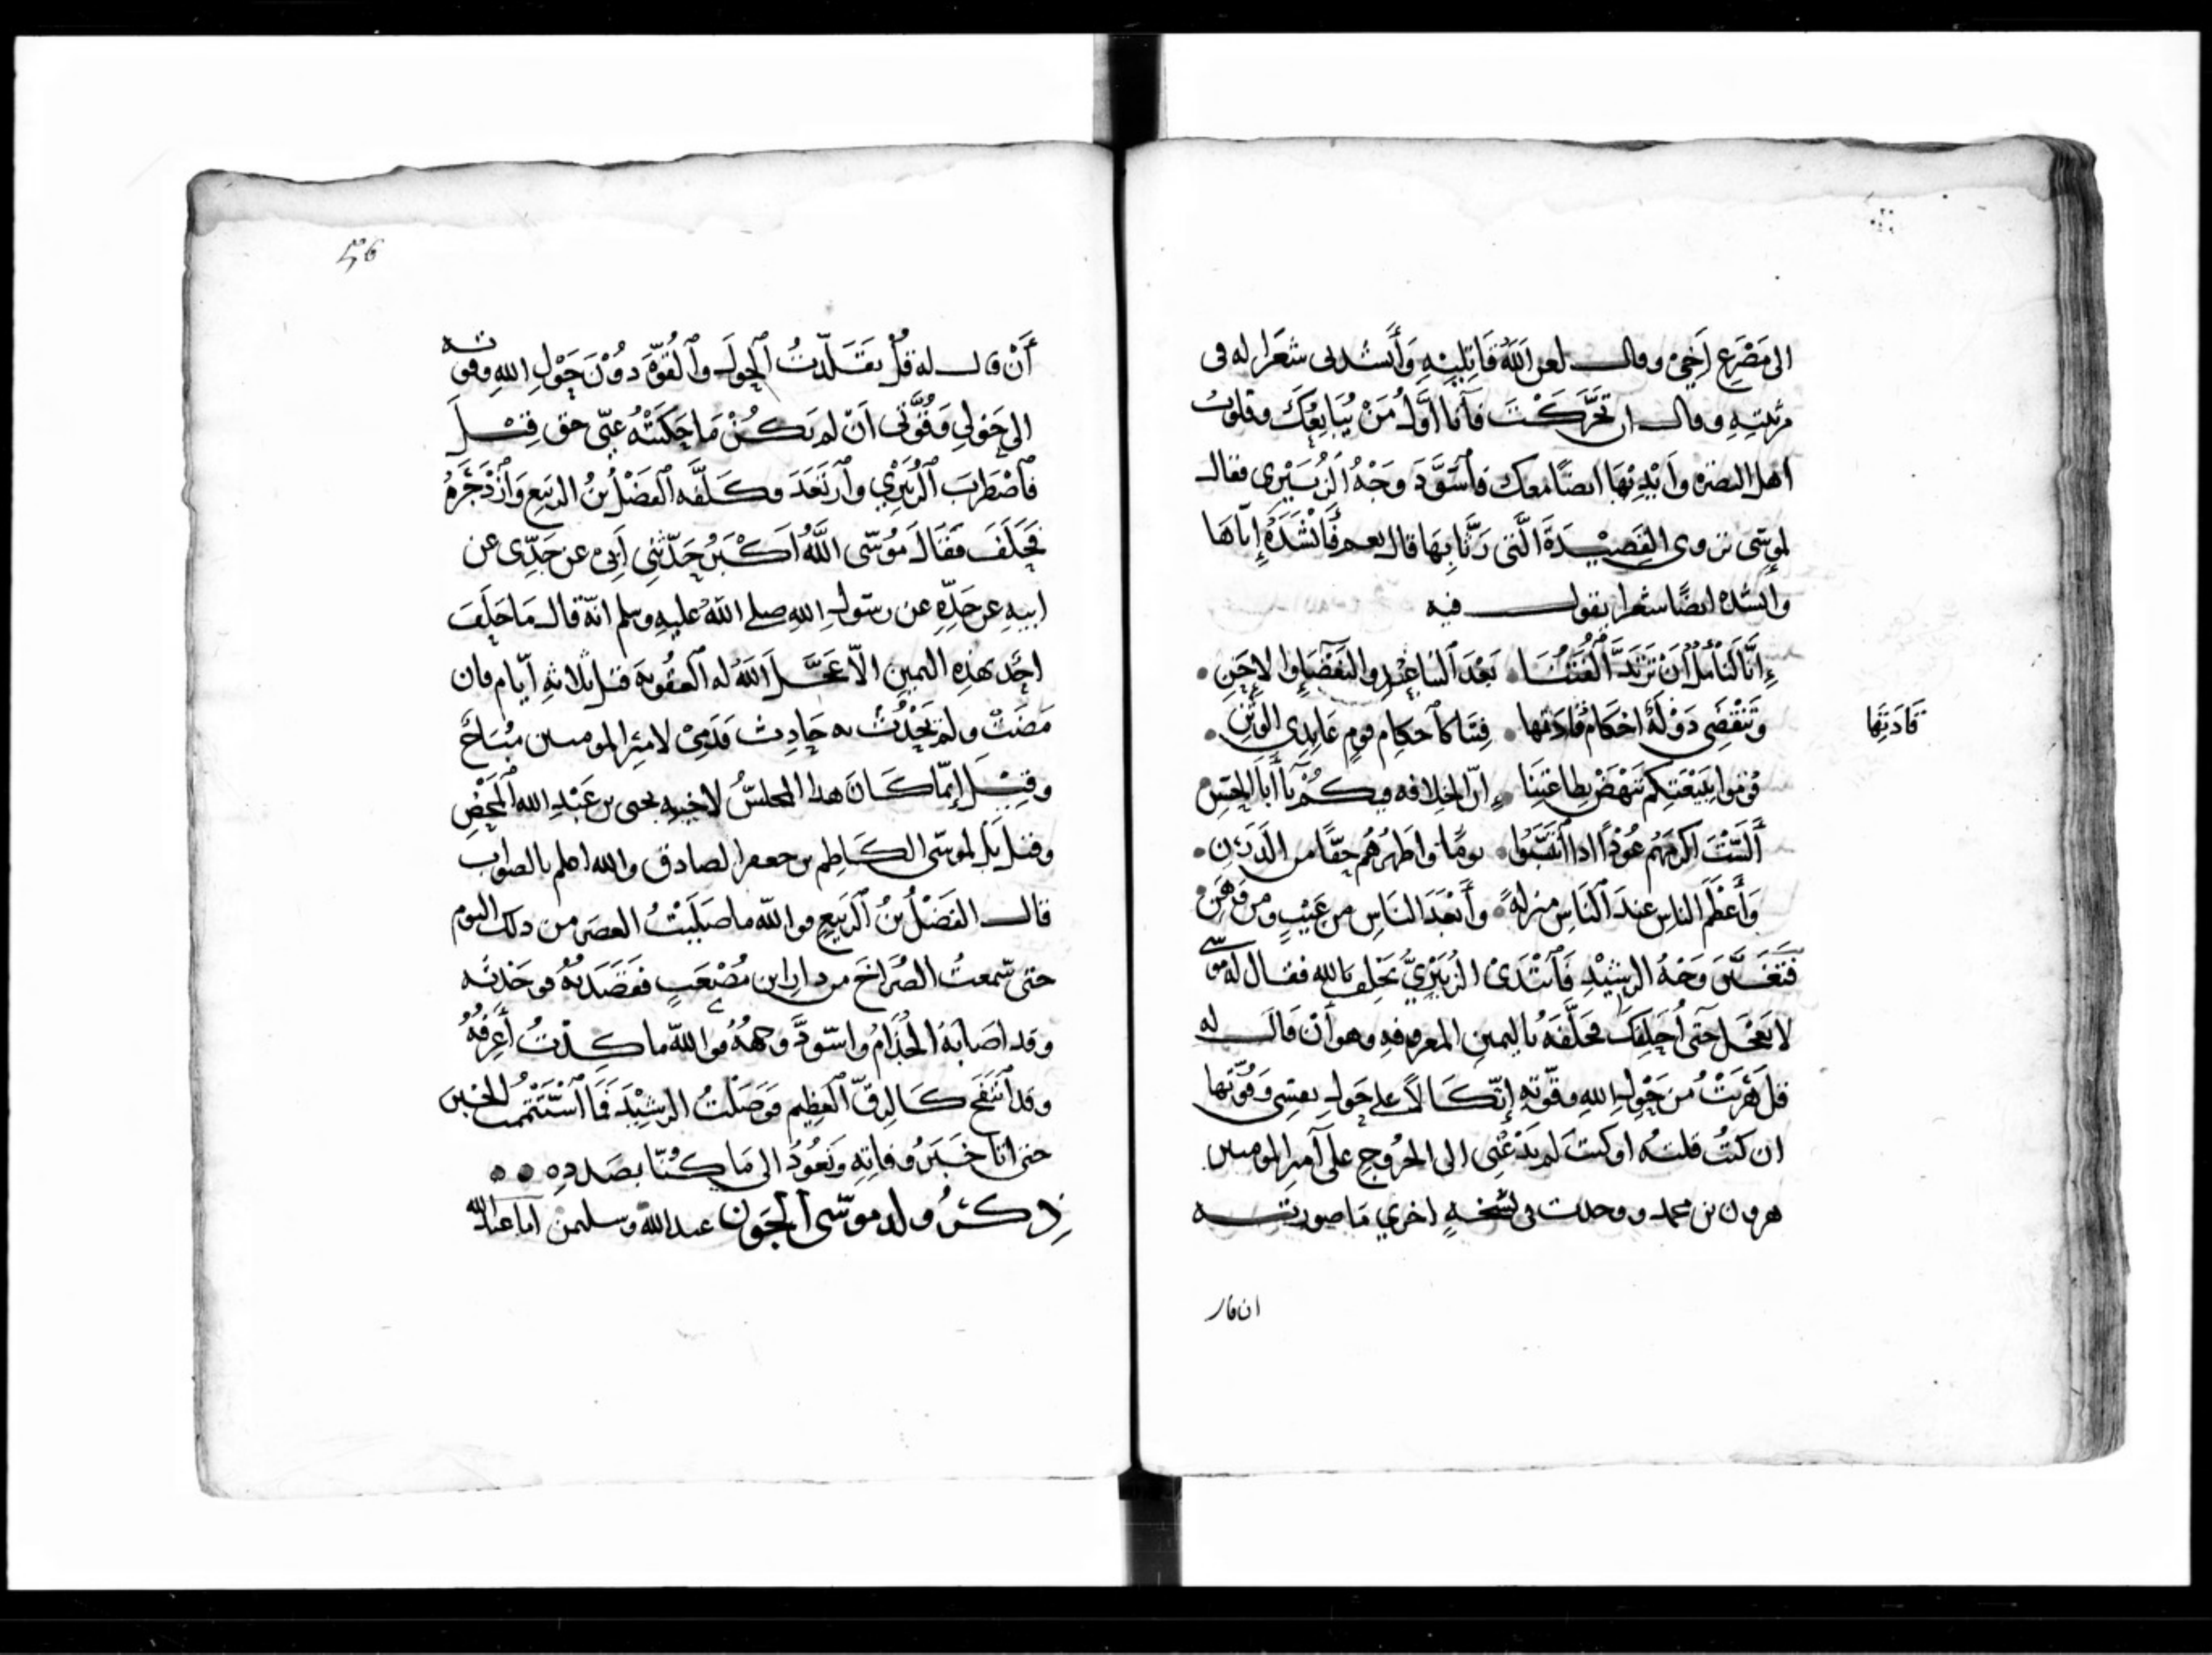 الى مَصْرَعِ اَخِيْ وقال لعن اللَّهُ قَاتِلِيْهِ وَأنشدني شعرًا له فى
مرثيتِهِ وقال ان تحَرَّكْتَ فأنا اوَّلُ مَنْ يُبَايِعُكَ وقلوبُ
اهل البصْرَه وَايْدِيْهَا ايضًا معك فاسْوَدَّ وَجْهُ الزُّبَيْرى فقال
لموسى تروى القصِيْدَةَ الَّتى رَثَا بِهَا قال نعم فَأَنْشَدَهُ إيّاها
وانشده ايضًا شعرا يقول فيه
إِنَّا لَنَأمُلُ أَنْ تَرْتَدَّ أُلْفَتُنَا • بَعْدَ التباعُدِ والبَغْضَاءِ والاِحَنِ •
وَتَنْقَضِى دَوْلَةٌ احْكَام قادتها • فِيْنَا كأحكام قومٍ عَابِدِى الوَثَنِ •
قَادَتِهَا
قُوْمُوا بِبَيْعَتِكم نَنْهَضْ بِطاعَتِنَا • إِنّ الخِلافه فيكُمْ يَا أبا الحَسَنِ
أَلَسْتَ اكرَمَهُم عُوْدًا اذا انْتَسَبُوا • يومًا واطْهَرُهُم حقًّا من الدَّرَنِ •
وَأَعْظَمَ الناسِ عندَ النَّاسِ منزلةً • وأَبْعَدَ النَّاسِ من عَيْبٍ ومن وَهَنِ •
فَتَغَيَّرَ وَجْهُ الرشيْدِ فَابْتَدَى الزُّبَيْرِيُّ يَحْلِفُ بالله فقال له موسى
لا تَعْجَل حَتّى اُحَلِّفَكَ فحَلَّفَهُ باليمين المعروفهِ وهو أَنْ قَالَ له
قل بَرِئْتُ من حَوْلِ اللهِ وقُوّتِهِ إتّكَالًا على حَولِ نفسِى وَقُوّتها
ان كنتُ قلتهُ او كنتَ لم تَدْعُنِى الى الخرُوجِ على أمير المومنين
هرون بن محمد ووجدت فى نُسْخَهٍ اخرى مَا صورته
ان قال
٥٦
أَنْ قال له قُلْ تقَلَّدْتُ الحولَ والقُوَّةَ دُوْنَ حَوْلِ اللهِ وقوته
الى حَوْلِي وَقُوَّتى اَنْ لم يَكُنْ مَا حَكَيْتُهُ عَنّى حق قِيْلَ
فاضْطَربَ الزُّبَيْرِي وارتَعَدَ وكَلَّفَه الفَضْلُ بنُ الربَيعِ وَازْدَجَرَهُ
فَحَلَفَ فَقَالَ مُوْسَى اللَّهُ اَكْبَرُ حَدّثنِى أَبِى عن جَدِّى عن
ابيهِ عن جَدِّهِ عن رسَولِ اللهِ صلى اللهُ عليهِ وسلم انّه قال مَا حَلَفَ
احَد بهذِهِ اليمينِ الاّ عَجَّلَ اللهُ له العقُوبَة قبل ثلاثهِ أيّام فان
مَضَتْ ولم يَحْدُثْ به حَادِث فَدَمِىْ لامِيْر المومنين مُبَاحٌ
وقِيْلَ إنّما كَانَ هذا المجلسُ لاخيهِ يحيى بن عَبْدِ اللهِ المَحْضِ
وقيل بَل لموسَى الكَاظِم بن جعفر الصادق والله اعلم بالصواب
قال الفَضْلُ بْنُ الرَبيعِ فوالله ما صَلَّيْتُ العصَر من ذلك اليوم
حتى سَمعتُ الصُرَاخَ من دار ابن مُصْعَبٍ فقَصَدتهُ فوجَدْتُه
وقد اصَابَهُ الجُذَامُ واسّودَّ وجههُ فوالله ما كِدْتُ أَعرِفُهُ
وقد انتَفَخَ كَالزِقّ العَظِيم فَوَصَلْتُ الرشِيْدَ فَمَا استَتْمَمْتُ الخبر
حتى اتا خَبَرُ وفاتِهِ ونَعُوْدُ الى مَا كُنّا بصَددِه • • ٥
ذِكْرُ ولد موسَى الجَون عبد الله وسليمن اما عبد الله